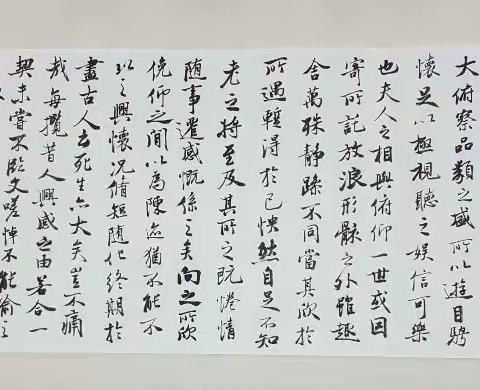 大俯察品類之盛所以遊目騁
懷足以極視聽之娛信可樂
也夫人之相與俯仰一世或因
寄所託放浪形骸之外雖趣
舍萬殊靜躁不同當其欣於
所遇輒得於己怏然自足不知
老之將至及其所之既惓情
随事遷感慨係之矣向之所欣
俛仰之間以為陳迹猶不能不
以之興懷況脩短随化終期於
盡古人云死生亦大矣豈不痛
哉每攬昔人興感之由若合一
契未嘗不臨文嗟悼不能喻之